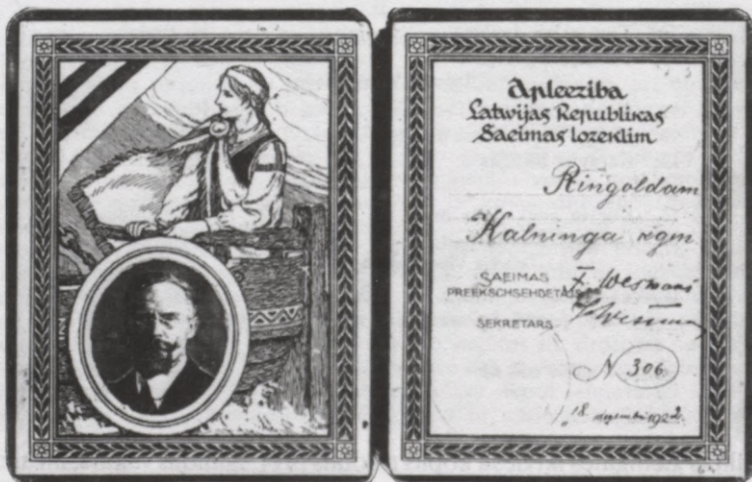 Apleeziba
Latwijas Republikas
Saeimas lozeklim
Ringoldam
Kalninga kgm.
SAEIMAS
PREEKSCHSEHDETAJS
SEKRETARS
N 306
18. dezembri 1922.